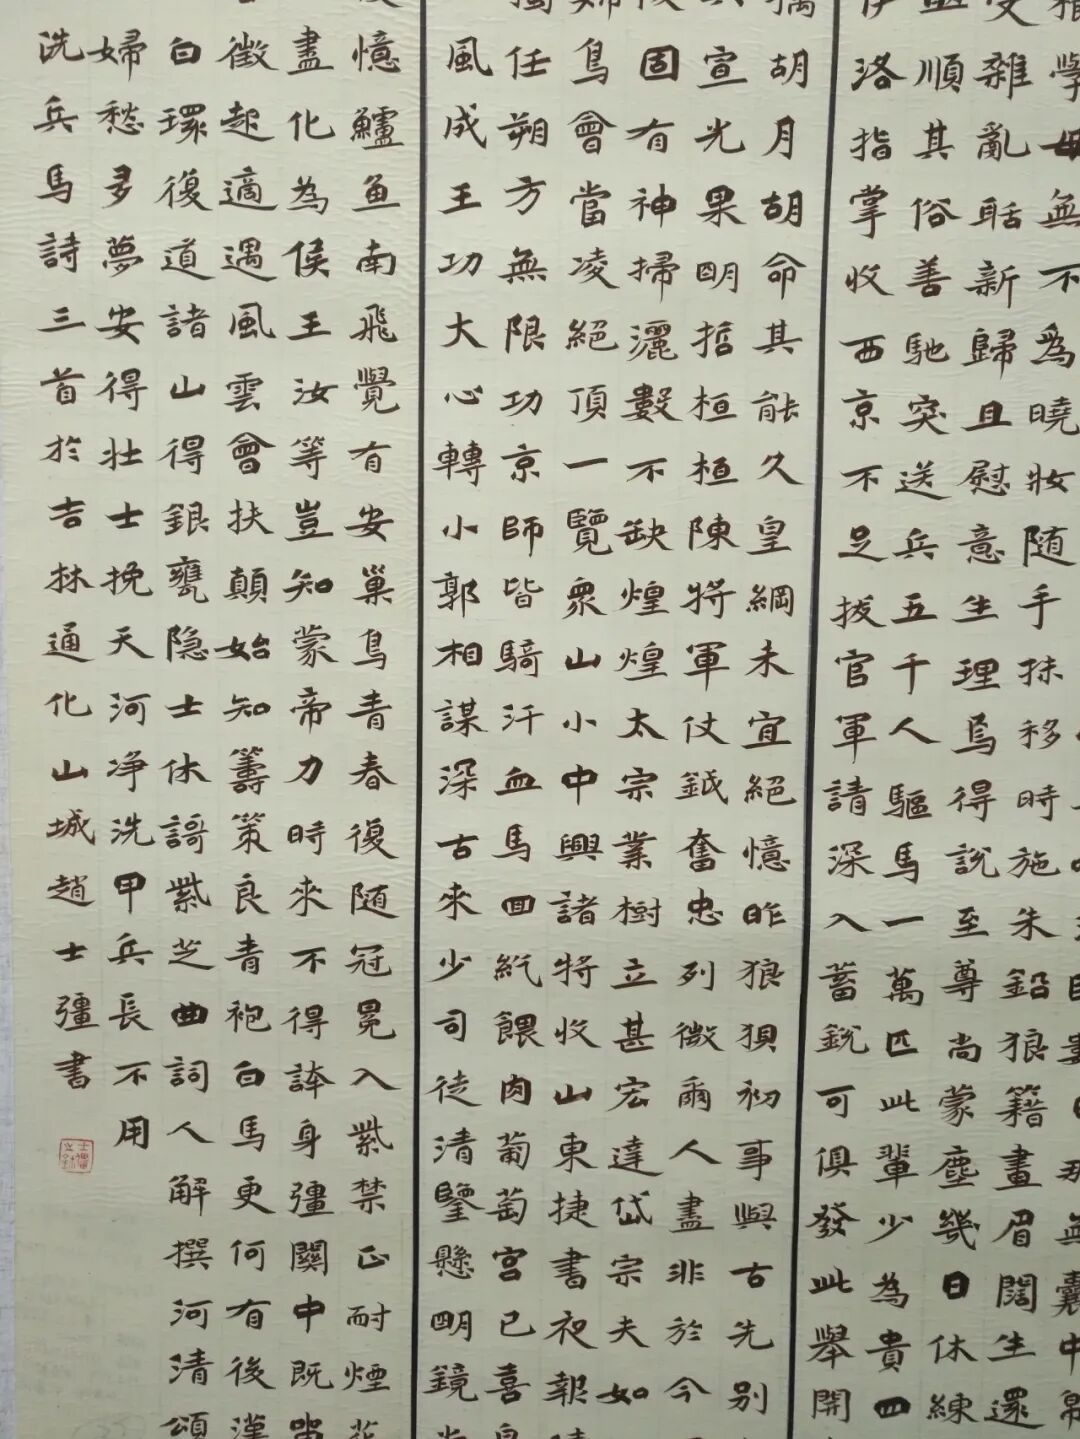 囊中
學母無不為曉妝隨手抹移時施朱鉛狼籍畫眉闊生還
受雜亂聒新歸且慰意生理焉得說至尊尚蒙塵幾日休練
順其俗善馳突送兵五千人驅馬一萬匹此輩少為貴四
伊洛指掌收西京不足拔官軍請深入蓄銳可俱發此舉開
胡月胡命其能久皇綱未宜絕憶昨狼狽初事與古先別
宣光果明哲桓桓陳將軍仗鉞奮忠列微爾人盡非於今
固有神掃灑數不缺煌煌太宗業樹立甚宏達岱宗夫如
鳥會當凌絕頂一覽眾山小中興諸將收山東捷書夜報
任朔方無限功京師皆騎汗血馬回紇餵肉葡萄宮已喜
風成王功大心轉小郭相謀深古來少司徒清鑒懸明鏡
憶鱸魚南飛覺有安巢鳥青春復隨冠冕入紫禁正耐煙花
盡化為侯王汝等豈知蒙帝力時來不得誇身彊關中既留
徵起適遇風雲會扶顛始知籌策良青袍白馬更何有後漢
白環復道諸山得銀甕隱士休謌紫芝曲詞人解撰河清頌
婦愁多夢安得壯士挽天河淨洗甲兵長不用
洗兵馬詩三首於吉林通化山城趙士彊書